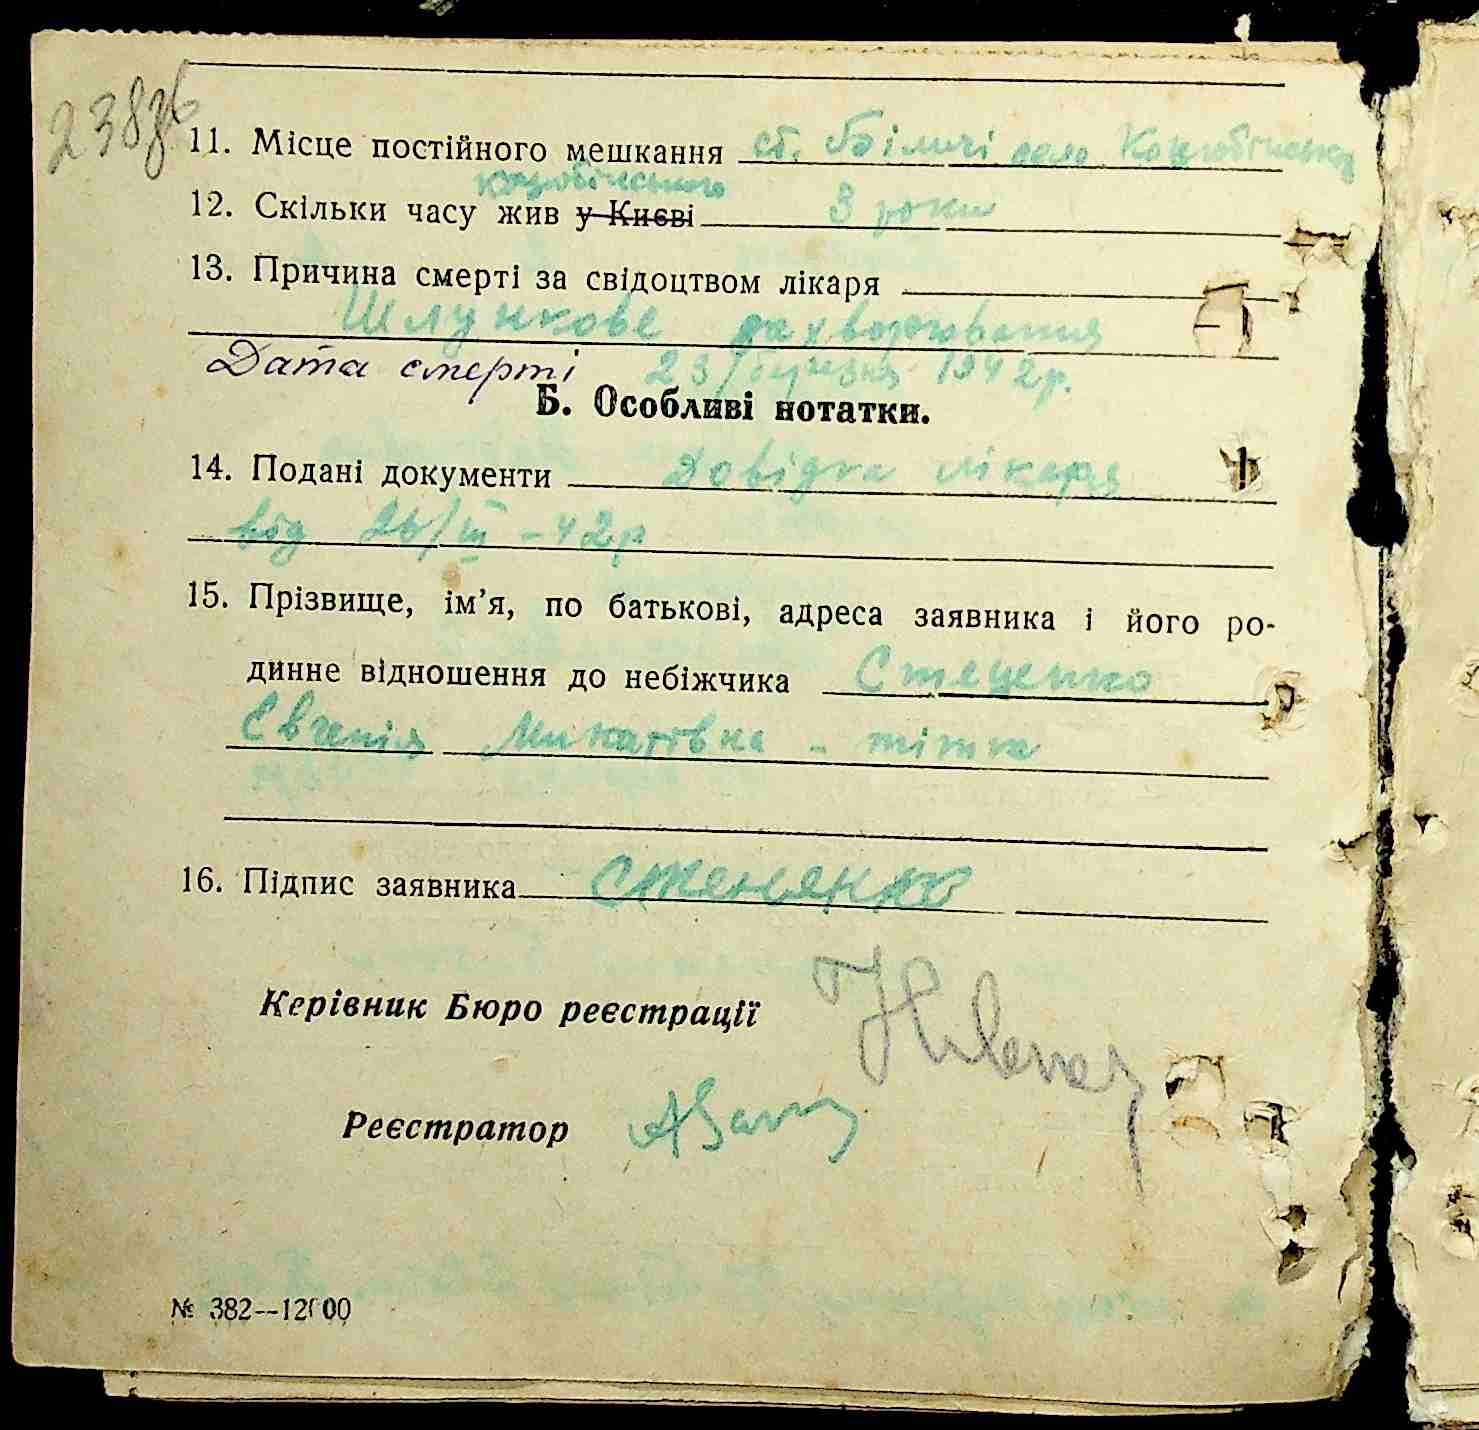 238зв
11. Місце постійного мешкання ст. Біличі село Коцюбінське
Коцюбінського
12. Скільки часу жив у Києві 3 роки
13. Причина смерті за свідоцтвом лікаря
Шлункове захворювання
Дата смерті 23/березня 1942р.
Б. Особливі нотатки.
14. Подані документи Довідка лікаря
від 26/III - 42р
15. Прізвище, ім’я, по батькові, адреса заявника і його ро-
динне відношення до небіжчика Стеценко
Євгенія Микатівна - тітка
16. Підпис заявника
Керівник Бюро реєстрації
Реєстратор
№ 382--12000